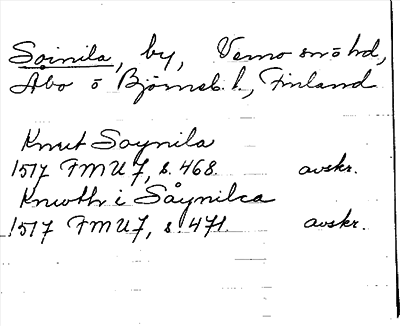 Soinila, by, Vemo snöhd,
Åbo o Björneb. l., Finland
Knut Soynila
1517 FMU 7, s. 468. avskr.
Knwth i Såynilca
1517 FMU 7, s. 471. avskr.